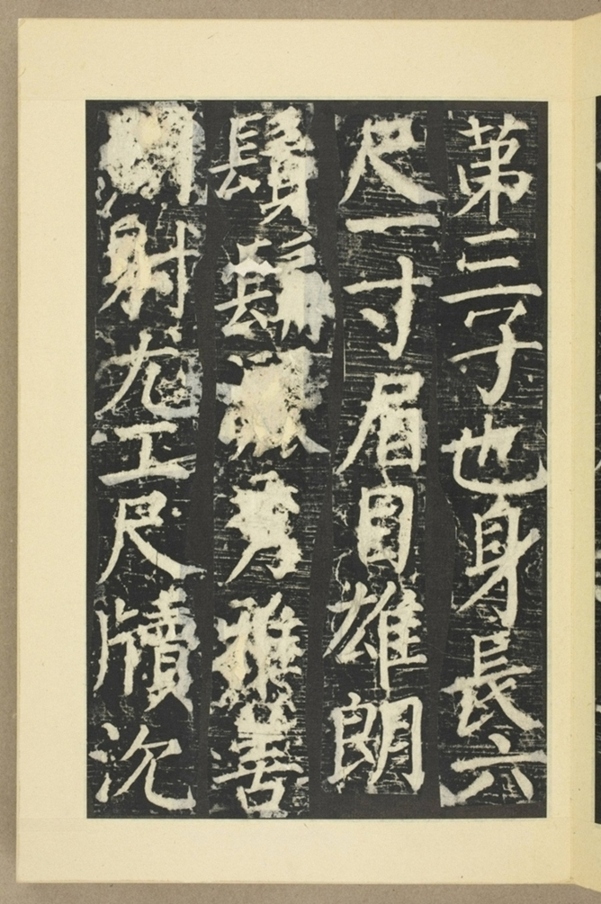 苐三子也身長六
尺一寸眉目雄朗
鬚秀雅善
射尤工尺牘沉